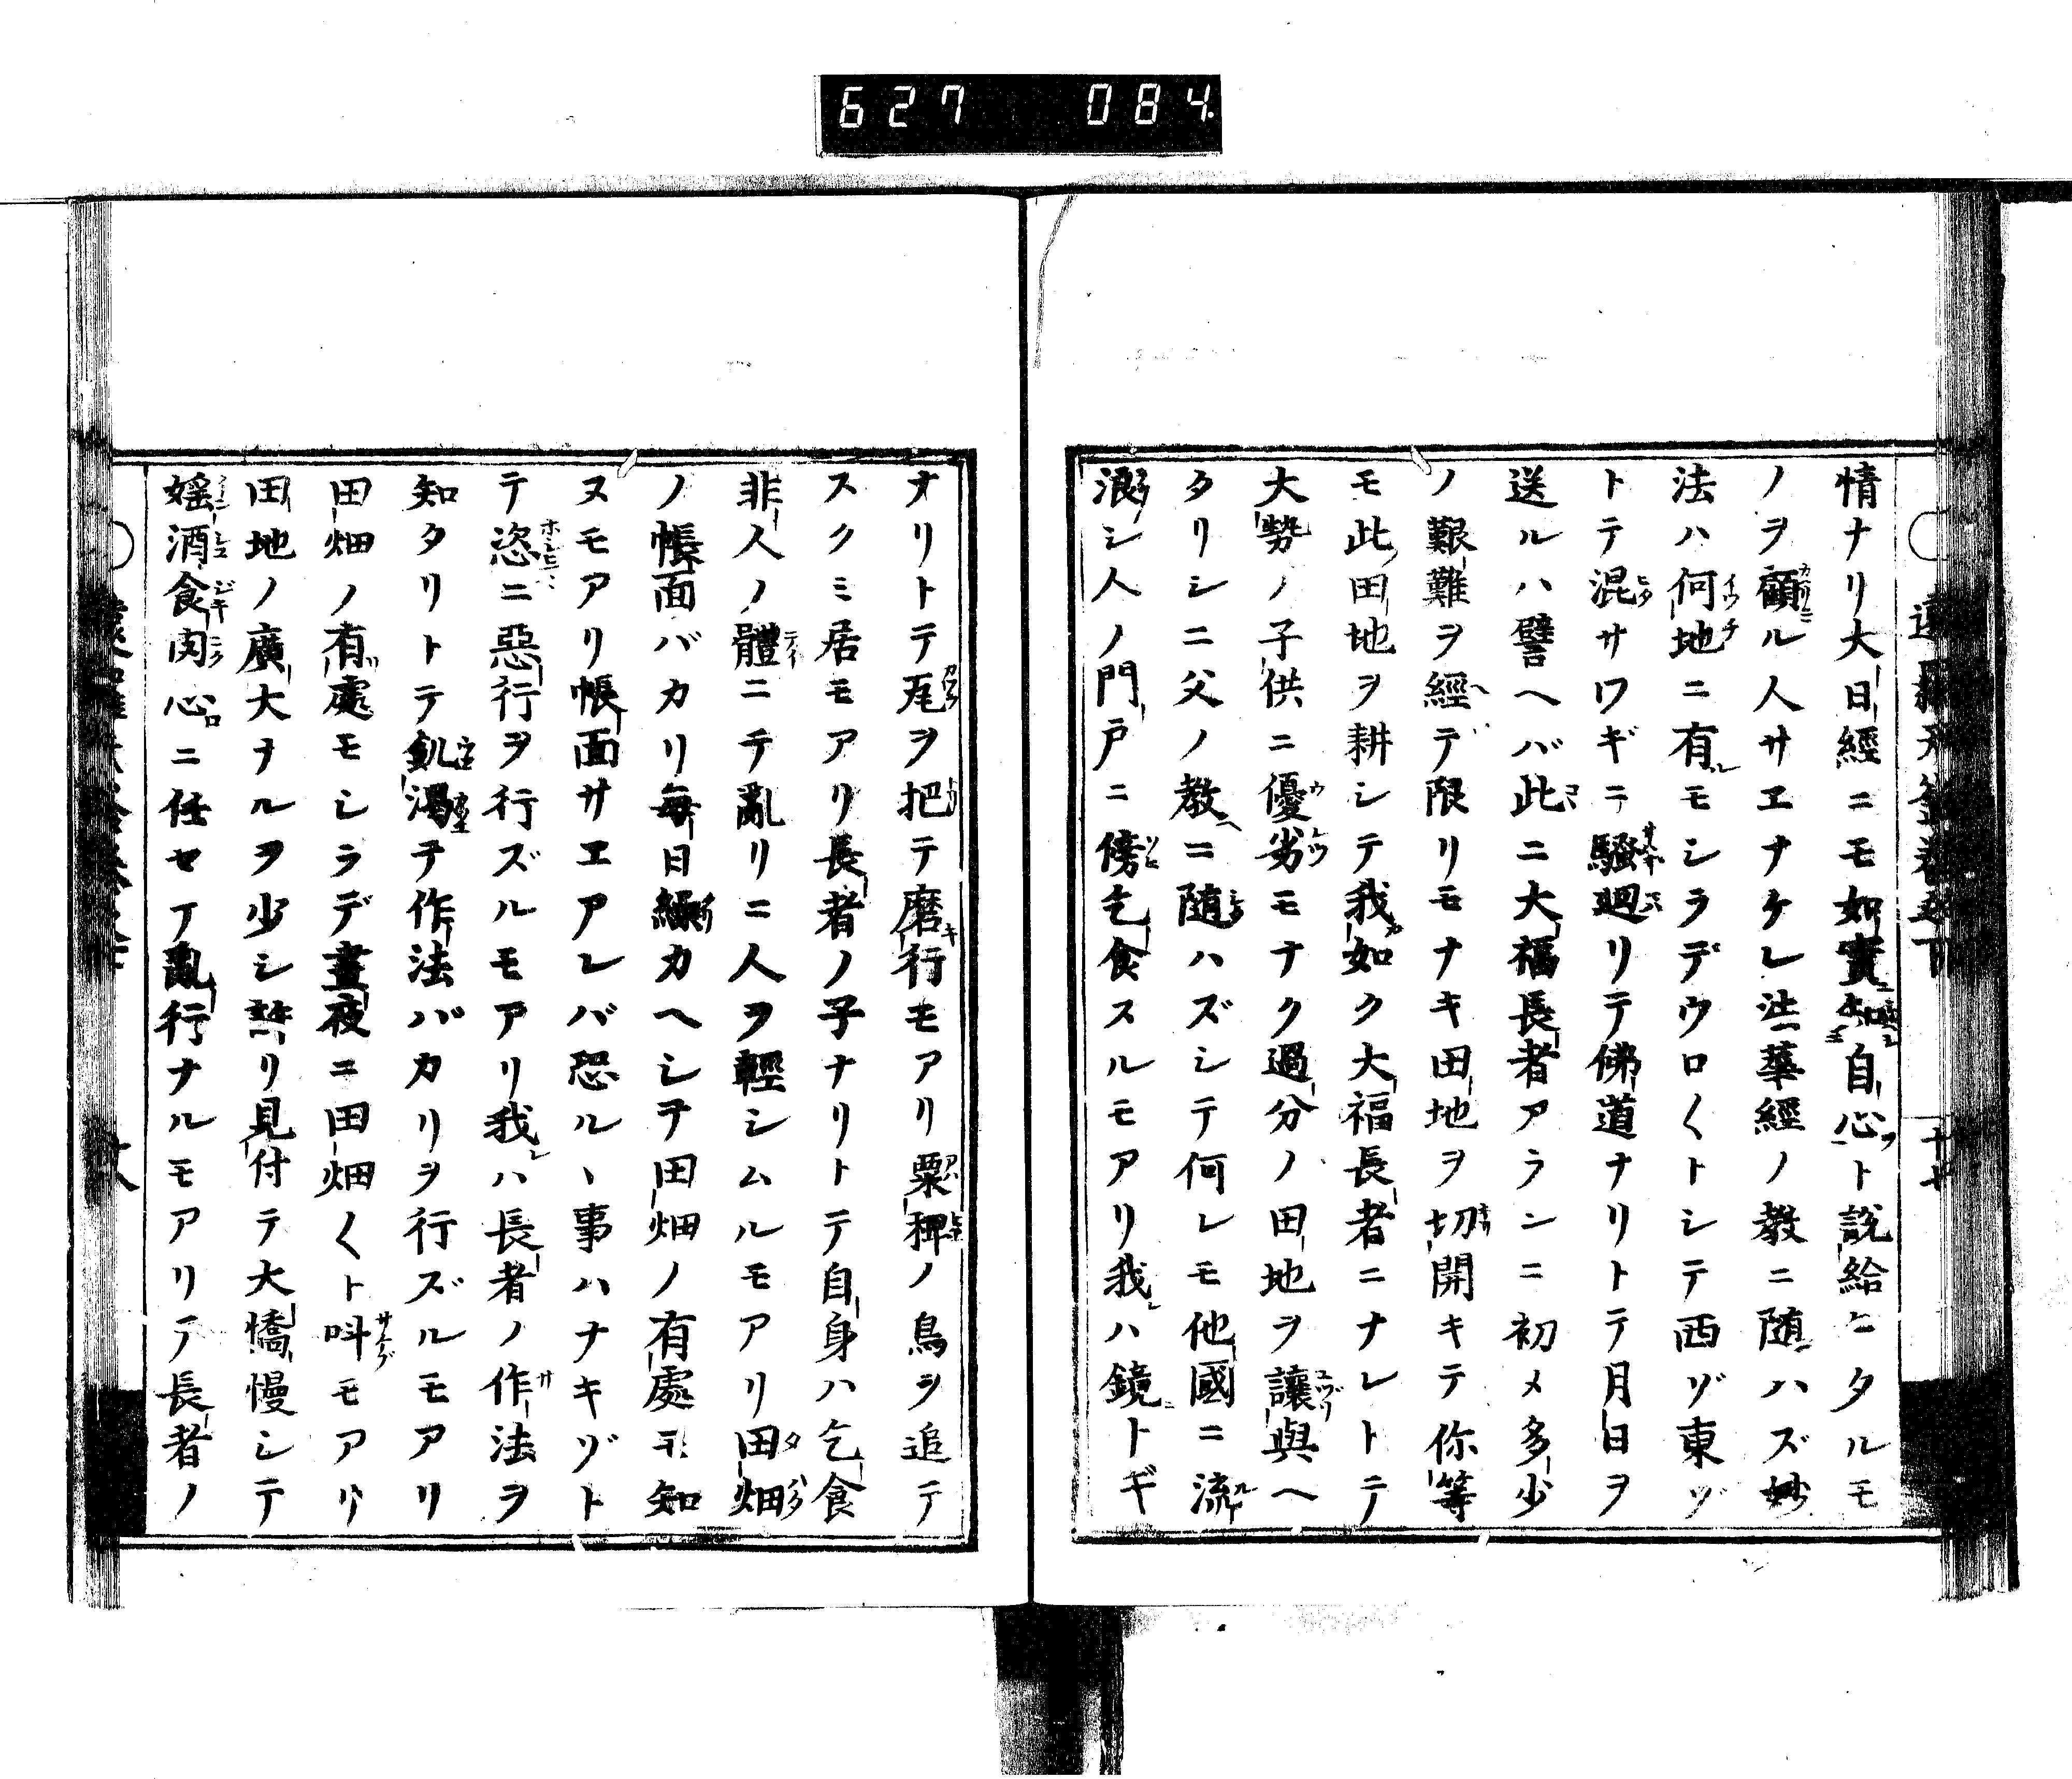 627 084
情ナリ大日經ニモ如實知自心ト説給ヒタルモ
ノヲ顧ル人サエナケレ法華經ノ教ニ随ハズ妙
法ハ何地ニ有モシラデウロ〱トシテ西ヅ東ヅ
トテ混サワギニ騒廻リテ佛道ナリトテ月日ヲ
送ルハ譬ヘバ此ニ大福長者アランニ初メ多少
ノ艱難ヲ經デ限リモナキ田地ヲ切開キテ你等
モ此田地ヲ耕シテ我如ク大福長者ニナレトテ
大勢ノ子供ニ優劣モナク過分ノ田地ヲ讓與ヘ
タリシニ父ノ教ニ随ハズシテ何レモ他國ニ流
浪シ人ノ門戸ニ傍乞食スルモアリ我ハ鏡トギ
ナリトテ瓦ヲ把テ磨行モアリ粟稗ノ鳥ヲ追テ
スクミ居モアリ長者ノ子ナリトテ自身ハ乞食
非人ノ體ニテ亂リニ人ヲ輕シムルモアリ田畑
ノ帳面バカリ毎日繰カヘシヲ田畑ノ有處モ知
ヌモアリ帳面サエアレバ恐ルヽ事ハナキゾト
テ恣ニ惡行ヲ行ズルモアリ我ハ長者ノ作法ヲ
知タリトテ飢渇テ作法バカリヲ行ズルモアリ
田畑ノ有處モシラデ晝夜ニ田畑〱ト叫モアリ
田地ノ廣大ナルヲ少シ計リ見付テ大憍慢シテ
婬酒食肉心ニ任セテ亂行ナルモアリテ長者ノ